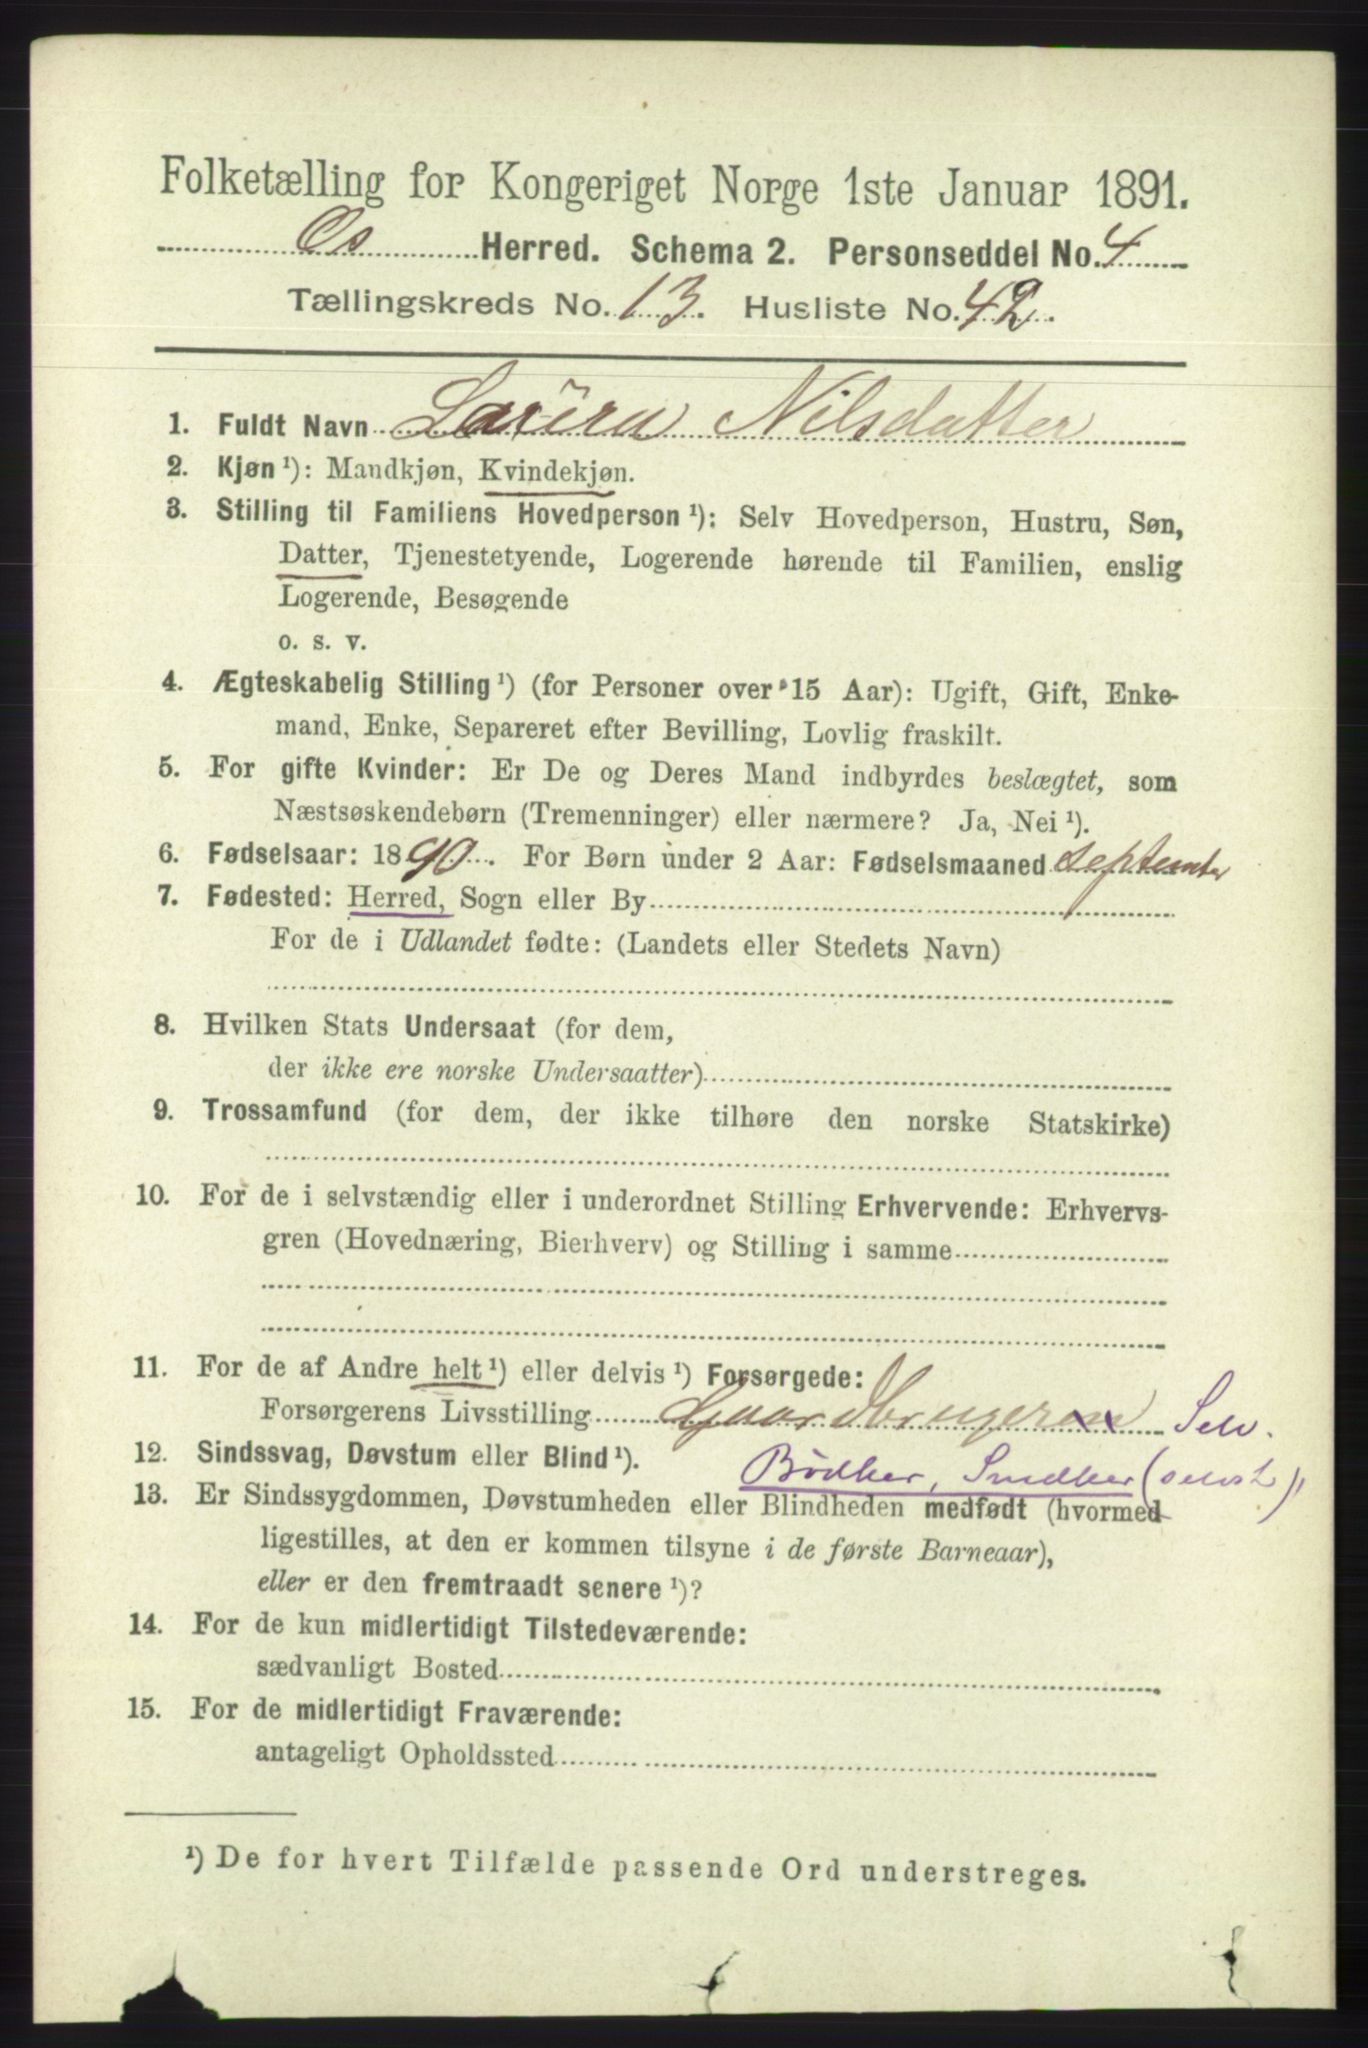 Folketælling for Kongeriget Norge 1ste Januar 1891.
Os Herred. Schema 2. Personseddel No. 4
Tællingskreds No. 13. Husliste No. 42.
1. Fuldt Navn Nilsdatter
2. Kjøn ¹): Mandkjøn, Kvindekjøn.
3. Stilling til Familiens Hovedperson ¹): Selv Hovedperson, Hustru, Søn,
Datter, Tjenestetyende, Logerende hørende til Familien, enslig
Logerende, Besøgende
o. s. v.
4. Ægteskabelig Stilling ¹) (for Personer over 15 Aar): Ugift, Gift, Enke-
mand, Enke, Separeret efter Bevilling, Lovlig fraskilt.
5. For gifte Kvinder: Er De og Deres Mand indbyrdes beslægtet, som
Næstsøskendebørn (Tremenninger) eller nærmere? Ja, Nei ¹).
6. Fødselsaar: 1890. For Børn under 2 Aar: Fødselsmaaned September
7. Fødested: Herred, Sogn eller By
For de i Udlandet fødte: (Landets eller Stedets Navn)
8. Hvilken Stats Undersaat (for dem,
der ikke ere norske Undersaatter)
9. Trossamfund (for dem, der ikke tilhøre den norske Statskirke)
10. For de i selvstændig eller i underordnet Stilling Erhvervende: Erhvervs-
gren (Hovednæring, Bierhverv) og Stilling i samme
11. For de af Andre helt ¹) eller delvis ¹) Forsørgede:
Forsørgerens Livsstilling Gaardbruger Selv.
12. Sindssvag, Døvstum eller Blind ¹). Bødker, Snedker (selvst)
13. Er Sindssygdommen, Døvstumheden eller Blindheden medfødt (hvormed
ligestilles, at den er kommen tilsyne i de første Barneaar),
eller er den fremtraadt senere ¹)?
14. For de kun midlertidigt Tilstedeværende:
sædvanligt Bosted
15. For de midlertidigt Fraværende:
antageligt Opholdssted
¹) De for hvert Tilfælde passende Ord understreges.